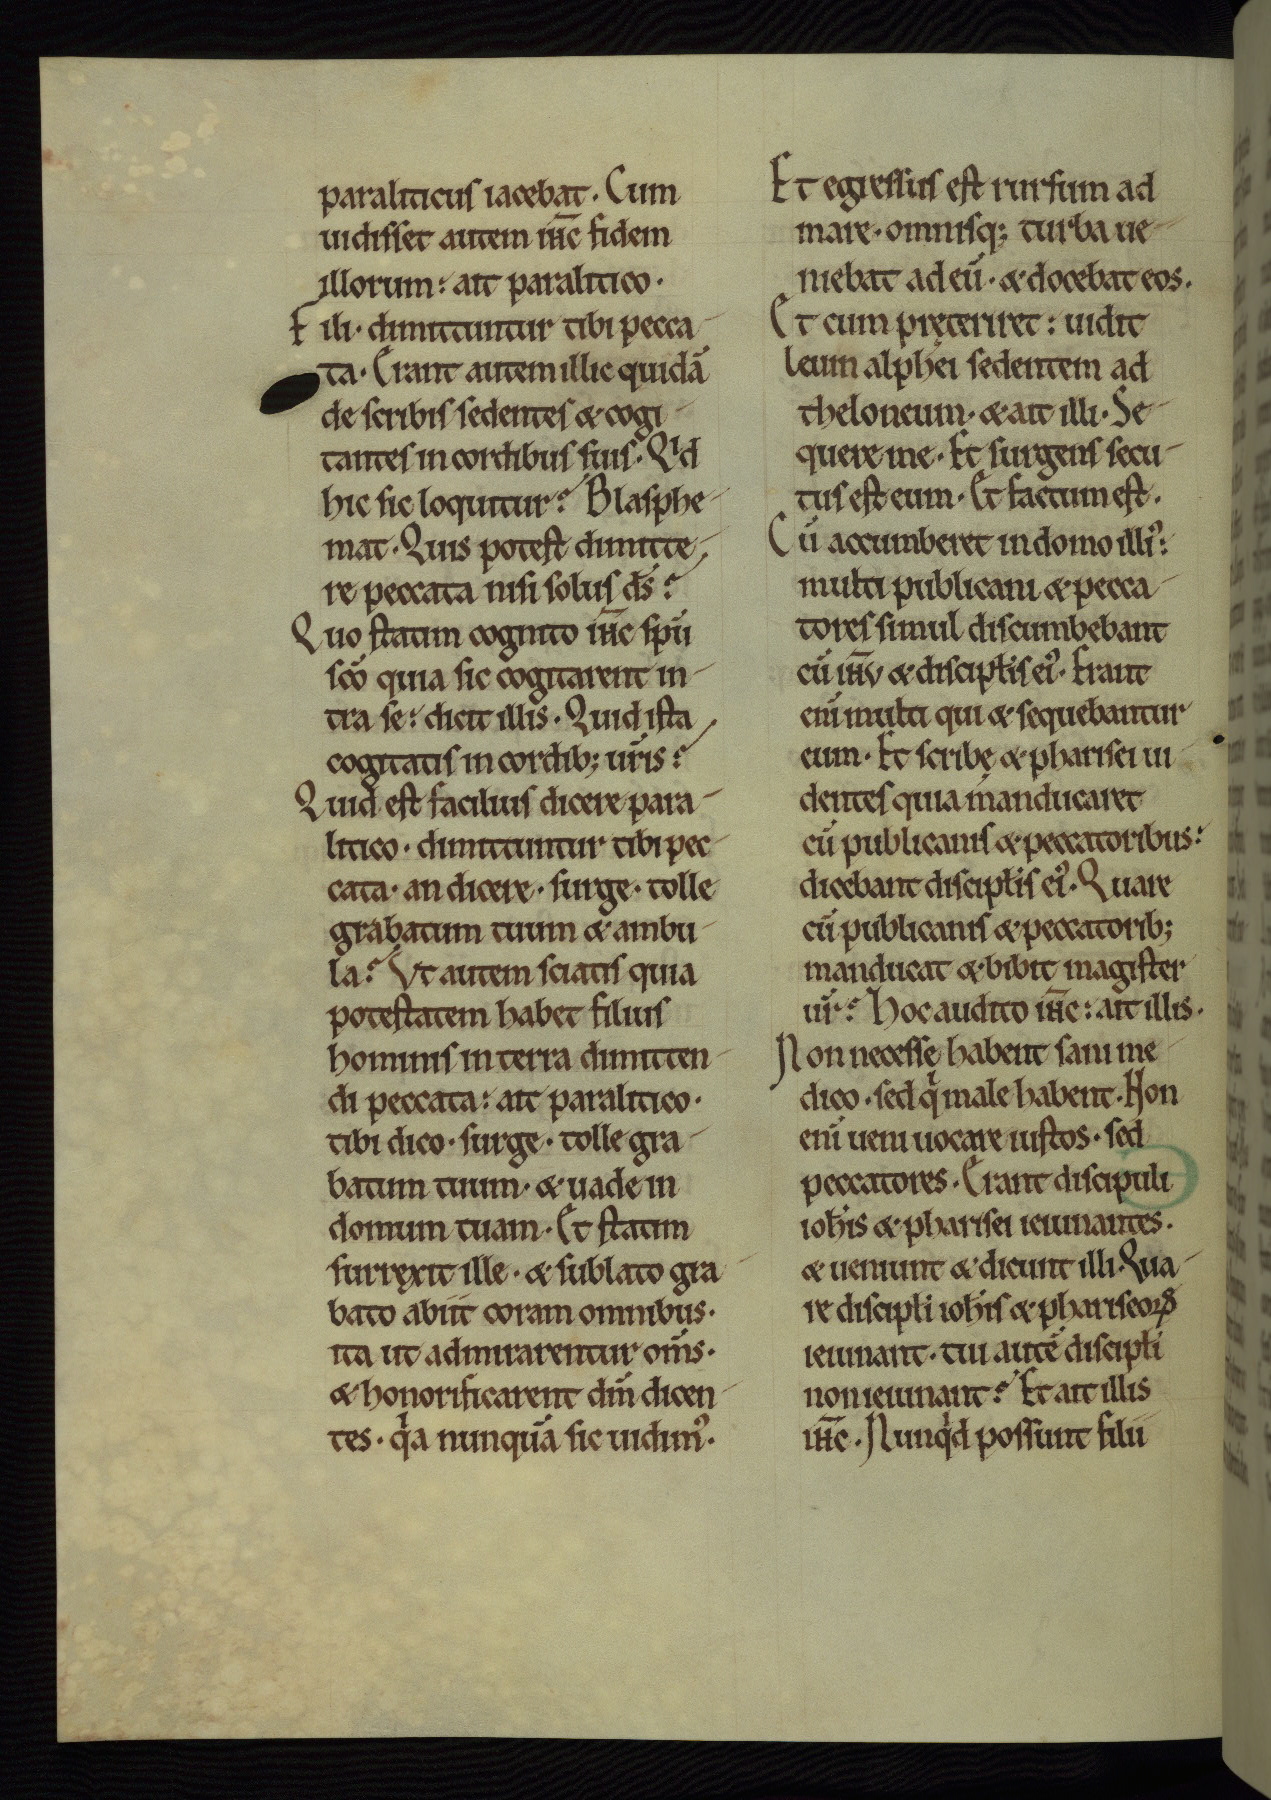 paraliticus iacebat. Cum
uidisset autem ih̅c fidem
illorum: ait paralitico.
Fili. dimittuntur tibi pecca-
ta. Erant autem illic quidā
de scribis sedentes & cogi-
tantes in cordibus suis. Qͥd
hic sic loquitur? Blasphe-
mat. Quis potest dimitte-
re peccata nisi solus ds̅?
Quo statim cognito ih̅c spū
scō quia sic cogitarent in-
tra se: dicit illis. Quid ista
cogitatis in cordib; ur̅is?
Quid est facilius dicere para-
litico. dimittuntur tibi pec-
cata. an dicere. surge. tolle
grabatum tuum & ambu-
la? Vt autem sciatis quia
potestatem habet filius
hominis in terra dimitten-
di peccata: ait paralitico.
tibi dico. surge. tolle gra-
batum tuum. & uade in
domum tuam. Et statim
surrexit ille. & sublato gra
bato abiit coram omnibus.
ita ut admirarentur om̅s.
& honorificarent dm̅ dicen-
tes. qͥa nunquā sic uidimꝰ.
Et egressus est rursum ad
mare. omnisq; turba ue-
niebat ad eū. & docebat eos.
Et cum pręteriret: uidit
leuin alphei sedentem ad
theloneum. & ait illi. Se-
quere me. Et surgens secu-
tus est eum. Et factum est.
Cū accumberet in domo illiꝰ:
multi publicani & pecca-
tores simul discumbebant
cū ih̅u & discipl̅is eiꝰ. Erant
eni̅ multi qui & sequebantur
eum. Et scribę & pharisei ui-
dentes quia manducaret
cū publicanis & peccatoribus:
dicebant discipl̅is eiꝰ. Quare
cū publicanis & peccatorib;
manducat & bibit magister
ur̅? Hoc audito ih̅c: ait illis.
Non necesse habent sani me-
dico. sed qͥ male habent. Non
eni̅ ueni uocare iustos. sed
peccatores. Erant discipuli
ioh̅is & pharisei ieiunantes.
& ueniunt & dicunt illi. Qua-
re discipl̅i ioh̅is & phariseoꝝ
ieiunant. tui autē discipl̅i
non ieiunant? Et ait illis
ih̅c. Nunqͥd possunt filii